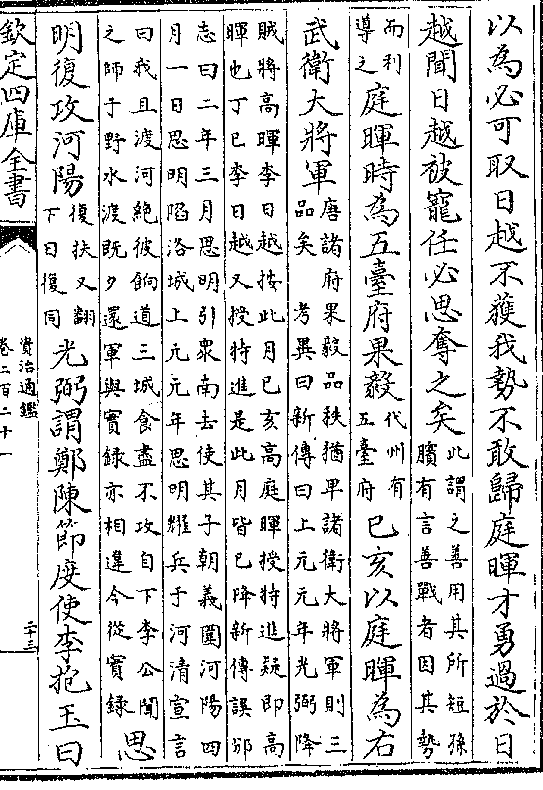 以為必可取日越不獲我勢不敢歸庭暉才勇過於日
越聞日越被寵任必思奪之矣此謂之善用其所短孫臏有言善戰者因其勢
而利導之庭暉時為五臺府果毅代州有五臺府己亥以庭暉為右
武衛大將軍唐諸府果毅品秩猶卑諸衛大將軍則三品矣 考異曰新傳曰上元元年光弼降
賊將高暉李日越按此月己亥高庭暉授特進疑即高暉也丁巳李日越又授特進是此月皆已降新傳誤邠
志曰二年三月思明引衆南去使其子朝義圍河陽四月一日思明陷洛城上元元年思明耀兵于河清宣言
曰我且渡河絶彼餉道三城食盡不攻自下李公聞之師于野水渡既夕還軍與實録亦相違今從實録思
明復攻河陽復扶又翻下日復同光弼謂鄭陳節度使李抱玉曰
欽定四庫全書
資治通鑑
卷二百二十一
二十三